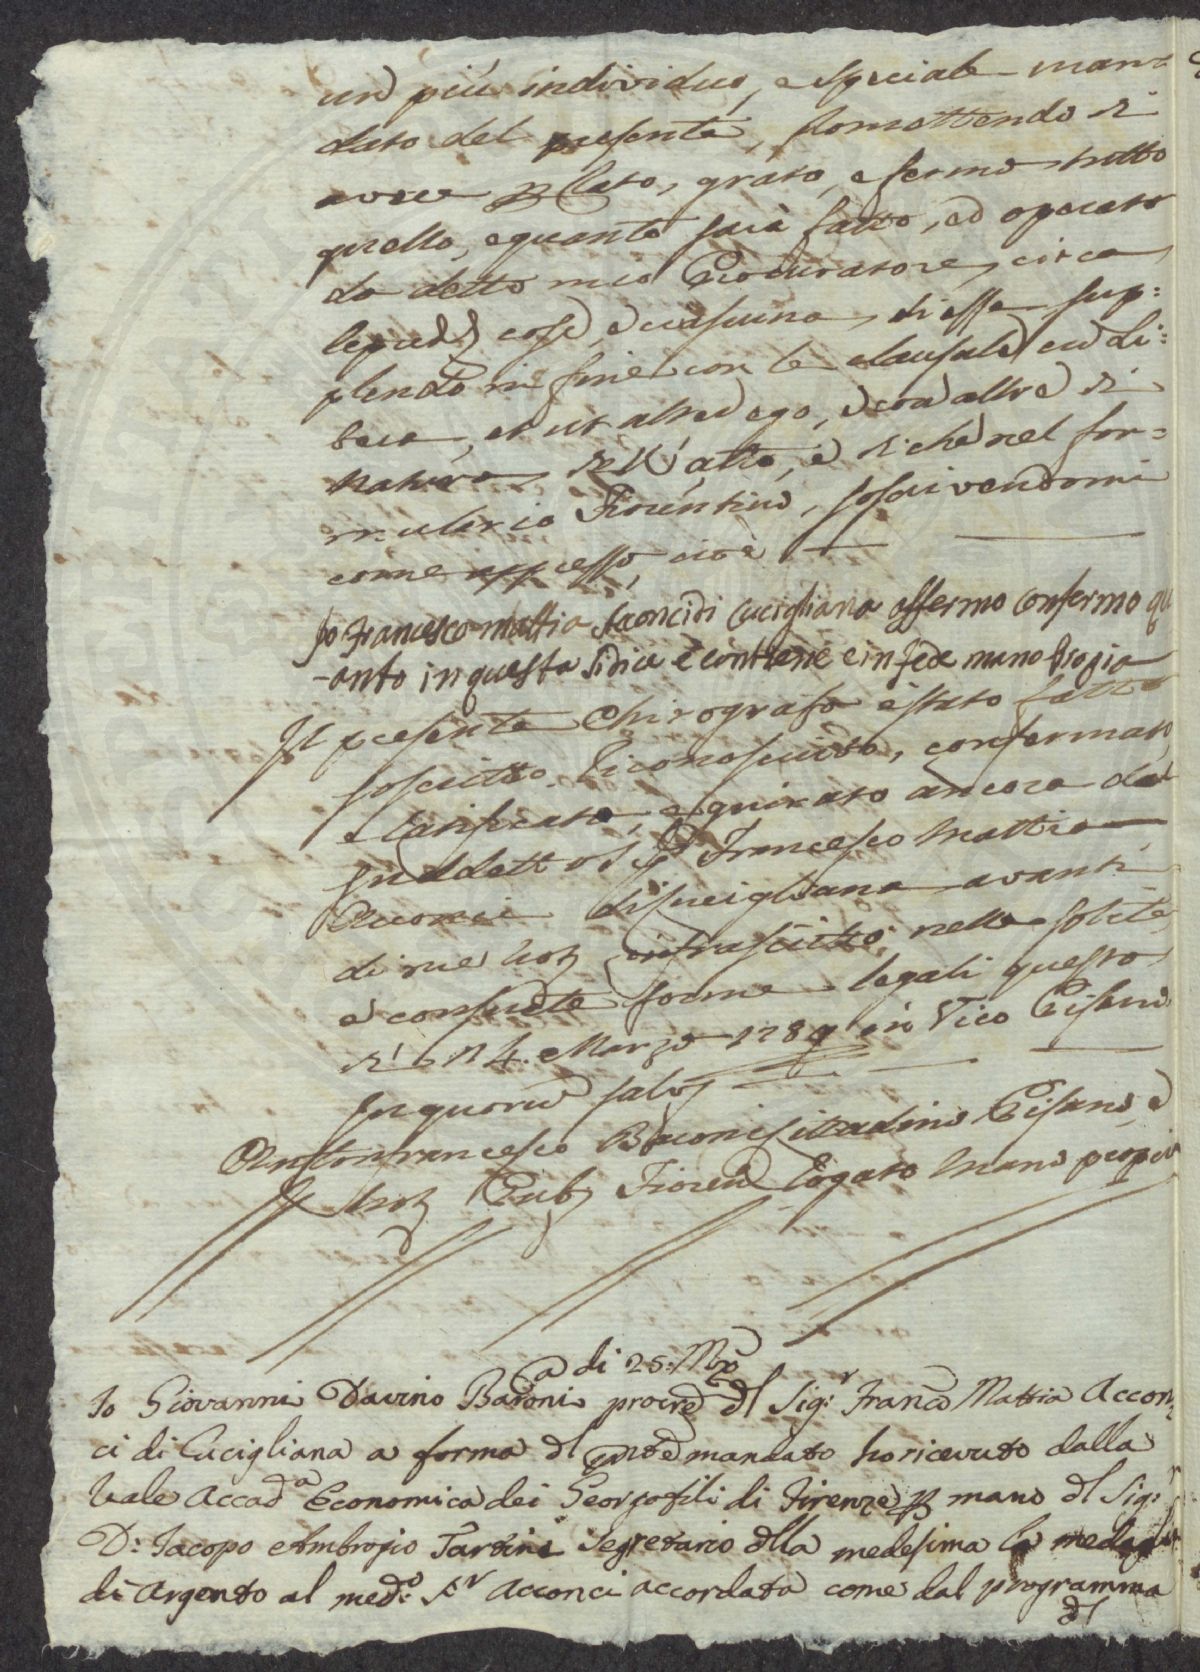 un più individuo, e speciale man=
dato del presente, promettendo di
avere p rato, grato, e fermo tutto
quello, e quanto sarà fatto, ed operato
da detto mio Procuratore, circa
le pred: cose, e ciascuna di esse sup=
plendo in fine con le clausule cū li=
bera, et ut alter ego, e con altre di
natura dell'atto, e di che nel for=
mulario Fiorentino, soscrivendomi
come appresso, cioè
Io Francesco mattia Aconci di Cucigliana affermo Confermo qu
-anto in questa si dice e contiene e in fede mano Propia
Il presente Chirografo è stato fatto
soscritto, riconosciuto, confermato,
e ratificato, e giurato ancora dal
suddetto Sigr Francesco Mattia
Acconci di Cucigliana avanti
di me Not infrascritto nelle solite,
e consuete forme legali questo
dì 14. Marzo 1789 in Vico Pisano
In quorū salv
Antonfrancesco Baroni Cittadino Pisano, e
Not Pub Fiorenō Rogato Mano propria
a di 25: Mzo
Io Giovanni Davino Baroni procre dl Sigr: Franco Mattia Accon
ci di Cucigliana a forma dl pnte mandato ho ricevuto dalla
Reale Accada Economica dei Georgofili di Firenze p mano dl Sig:
D: Jacopo Ambrogio Tartini Segretario dlla medesima la medaglia
di Argento al medo: Sr Acconci accordata come dal programma
dl